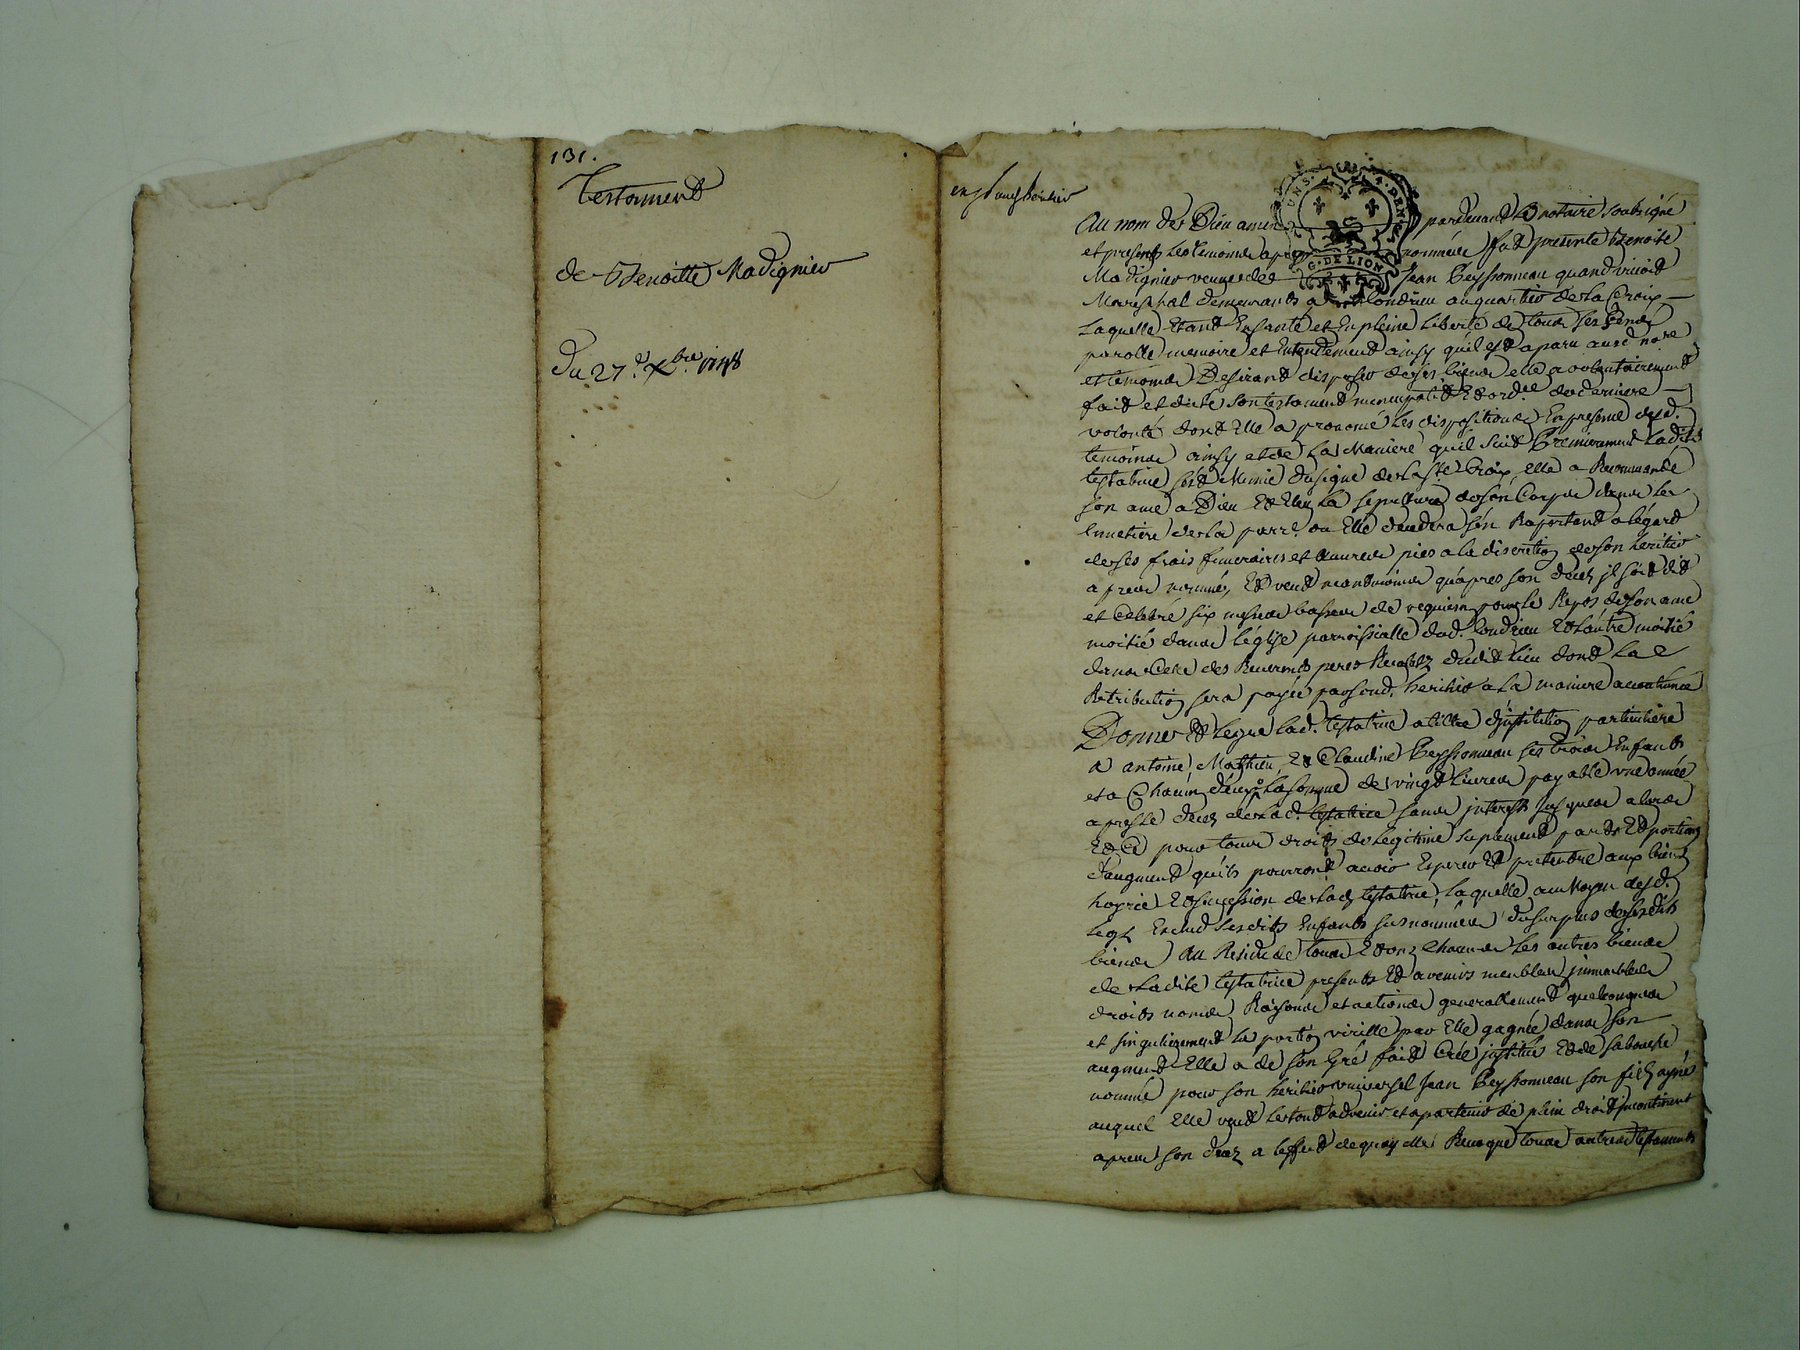 131.
Testament
de Benoitte Madignier
Du 27.e Xbre 1748
Au nom de Dieu amen pardevant le notaire soubsigné
et presents les temoins apres nommés fut presente Benoite
Madignier veuve de Jean Peyssonneau quand vivoit
Mareschal demeurante a Condrieu au quartier de la Croix
Laquelle Etant En santé et En pleine Liberté de tous ses sens
parolle memoire et Entendement ainsy quil est aparu audt nore
et temoins Desirant disposer de ses biens elle a volontairement
fait et dicté son testament nuncupatif Et ord.re de derniere
volonté dont Elle a prononcé les dispositions En presence desd.
temoins ainsy et de La Maniere quil suit Premierement Ladite
testatrice s'est Munie du signe de la Ste Croix Elle a Recommandé
son ame a Dieu Et Elu La sepulture de son Corps dans le
Cimetiere de la parr.e ou Elle decedera s'en Raportant a légard
de ses frais funeraires et œuvres pies a la discretion de son heritier
apres nommé, Et veut neantmoins qu'apres son decez il soit dit
et Celebré six messes basses de requiem pour le Repos de son ame
moitié dans l'église parroissialle dud. Condrieu Et L'autre moitié
dans Celle des Reverends peres Recolets dudit lieu dont La
Retribution sera payée par sond. heritier a La maniere accoutumée
Donne Et Legue lad. testatrice a tiltre d'institution particuliere
a antoine, Mathieu, Et Claudine Peyssonneau ses trois Enfants
et a Chacun d'eux La somme de vingt Livres payable une année
apres le decez de Lad. testatrice sans interests jusques alors
Et Ce pour tous droits de Legitime suplement parts Et portions
d'augment qu'ils pourront avoir Esperer Et pretendre aux biens
hoyrie Et succession de Lad. testatrice, Laquelle au Moyen desd.
Legs Exclud Lesdits Enfants susnommés du surplus de sesdits
biens Au Residu de tous Et Chacuns Les autres biens
de Ladite testatrice presents Et avenirs meubles immeubles
droits noms Raisons et actions generallement quelconques
et singulierement La portion virille par Elle gagnée dans son
augment Elle a de son Gré fait Créé institué Et de sa bouche
nommé pour son heritier universel Jean Peyssonneau son fils ayné
auquel Elle veut Le tout advenir et apartenir de plein droit incontinent
apres son decez a leffet de quoy elle Revoque tous autres testaments